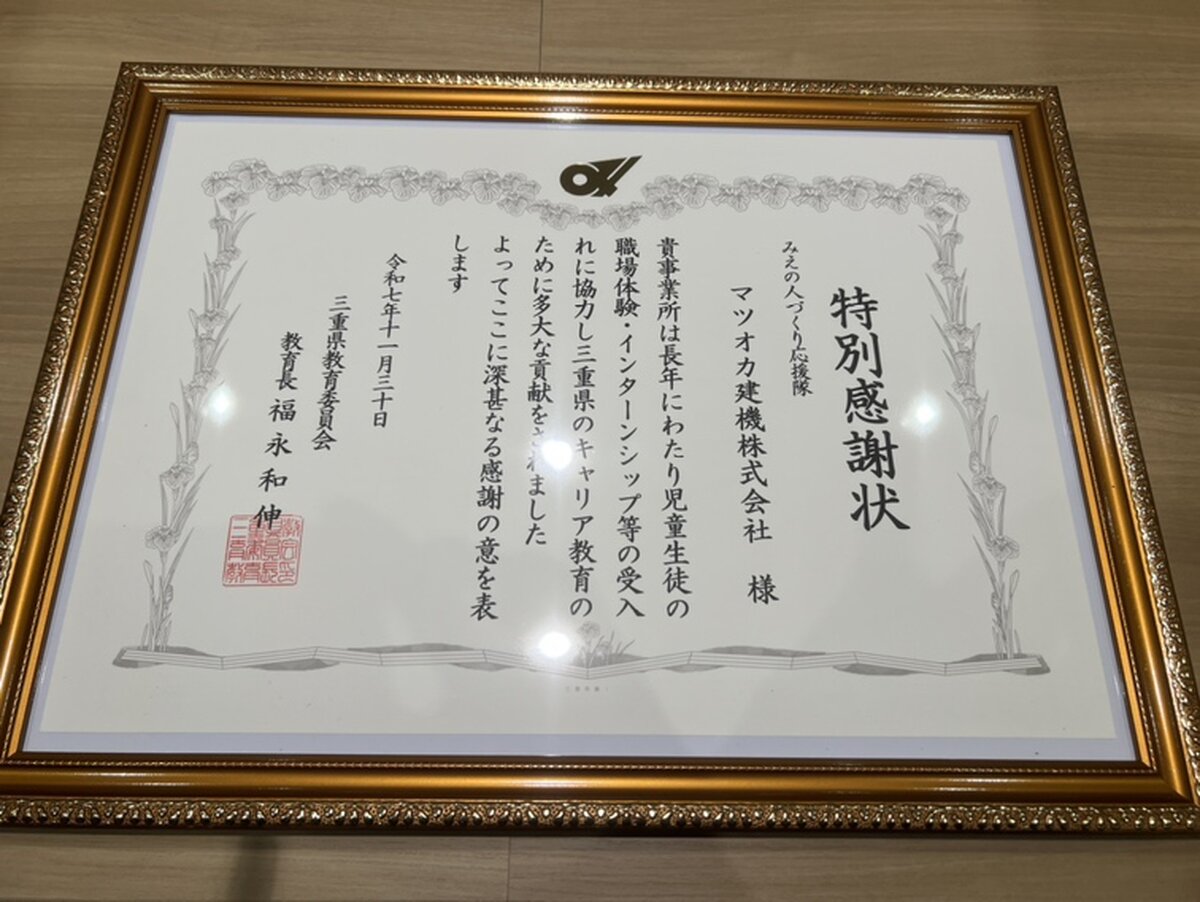 特別感謝状
みえの人づくり応援隊
マツオカ建機株式会社 様
貴事業所は長年にわたり児童生徒の
職場体験・インターンシップ等の受入
れに協力し三重県のキャリア教育の
ために多大な貢献をされました
よってここに深甚なる感謝の意を表
します
令和七年十一月三十日
三重県教育委員会
教育長 福永和伸